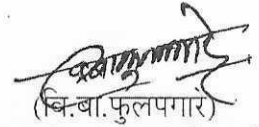 (वि.बा.फुलपगारे)